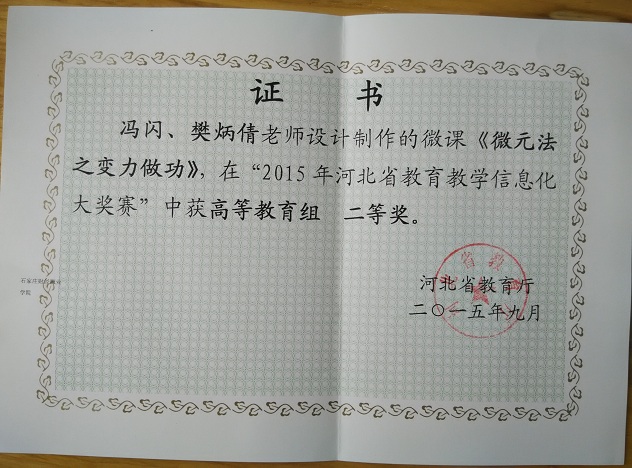 证 书
冯闪、樊炳倩老师设计制作的微课《微元法
之变力做功》，在“2015年河北省教育教学信息化
大奖赛”中获高等教育组 二等奖。
河北省教育厅
二〇一五年九月
学院
省教